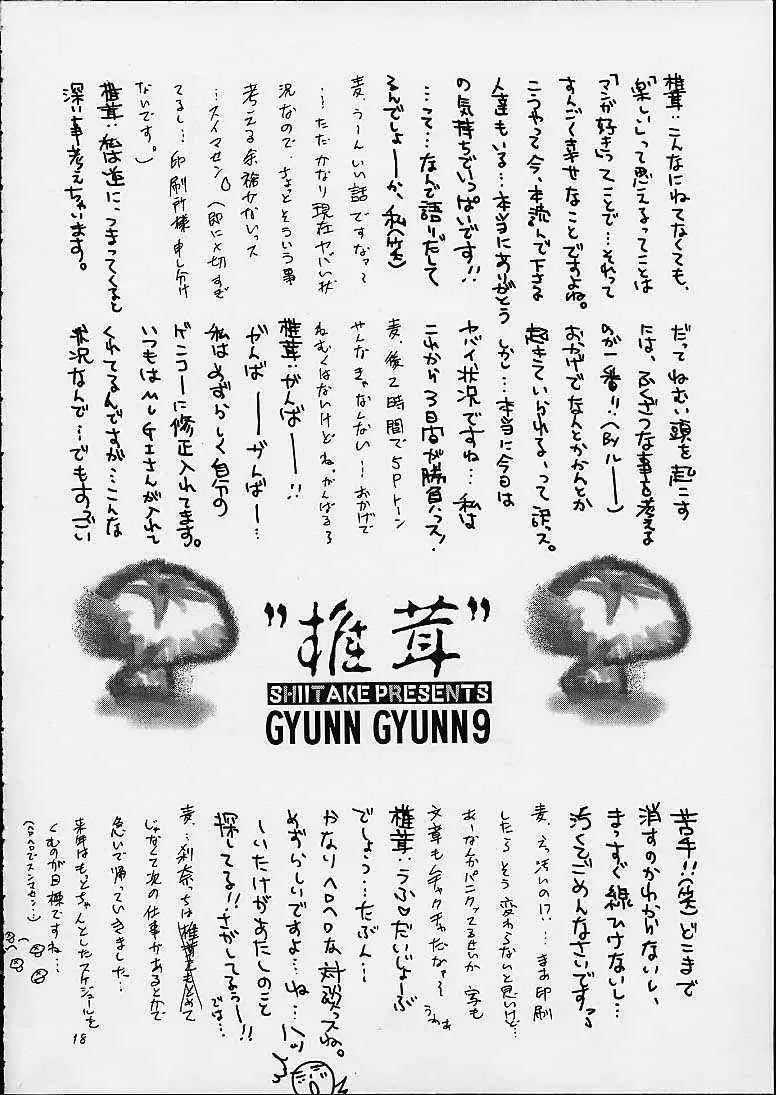 椎茸:こんなにねてなくても、
「楽しい」って思えるってことは
「マンガ好き」ってことで…それって
すんごく幸せなことですよね。
こうやって今、本読んで下さる
人達もいる…本当にありがとう
の気持ちでいっぱいです!!
…って…なんで語りだして
るんでしょーか、私(笑)
麦:うーんいい話ですなァ〜
…ただかなり現在ヤバい状
況なので、ちょっとそういう事
考える余裕がないっス
…スイマセン(即に〆切すぎ
てるし…印刷所様申し分け
ないです。)
椎茸:私は逆に、つまってくると
深い事考えちゃいます。
だってねむい頭を起こす
には、ふくざつな事を考える
のが一番!!(Byル——)
おかげでなんとかかんとか
起きていられる、って訳っス。
しかし…本当に今日は
ヤバイ状況ですね…私は
これから3日間が勝負っス!
麦:後2時間で5Pトーン
やんなきゃなんない…おかげで
ねむくはないけどね。がんばるろ
椎茸:がんばーーー!!
がんばーーがんばー…
私はめずらしく自分の
ゲンコーに修正入れてます。
いつもはMUGIさんが入れて
くれてるんですが…こんな
状況なんで…でもすっごい
"椎茸"
SHIITAKE PRESENTS
GYUNN GYUNN 9
苦手!!(笑)どこまで
消すのかわからないし、
まっすぐ線ひけないし…
汚くてごめんなさいです〜
麦:えっ汚いの!?…まあ印刷
したらそう変わらないと思いけど…
あーなんかパニクッてるせいか字も
文章もメチャクチャだなァ〜うわぁ
椎茸:うふ♡だいじょーぶ
でしょう…たぶん…
かなりヘロヘロな対談っスね。
めずらしいですよ…ね…ハッ
しいたけがあたしのこと
探してる!!さがしてるぅー!!
では…
麦:…刹奈っちは椎茸をもとめて
じゃなくて次の仕事があるとかで
急いで帰っていきました…
来年はもっとちゃんとしたスケジュールを
くむのが目標ですね…
(ヘロヘロでスンマセン…)
18